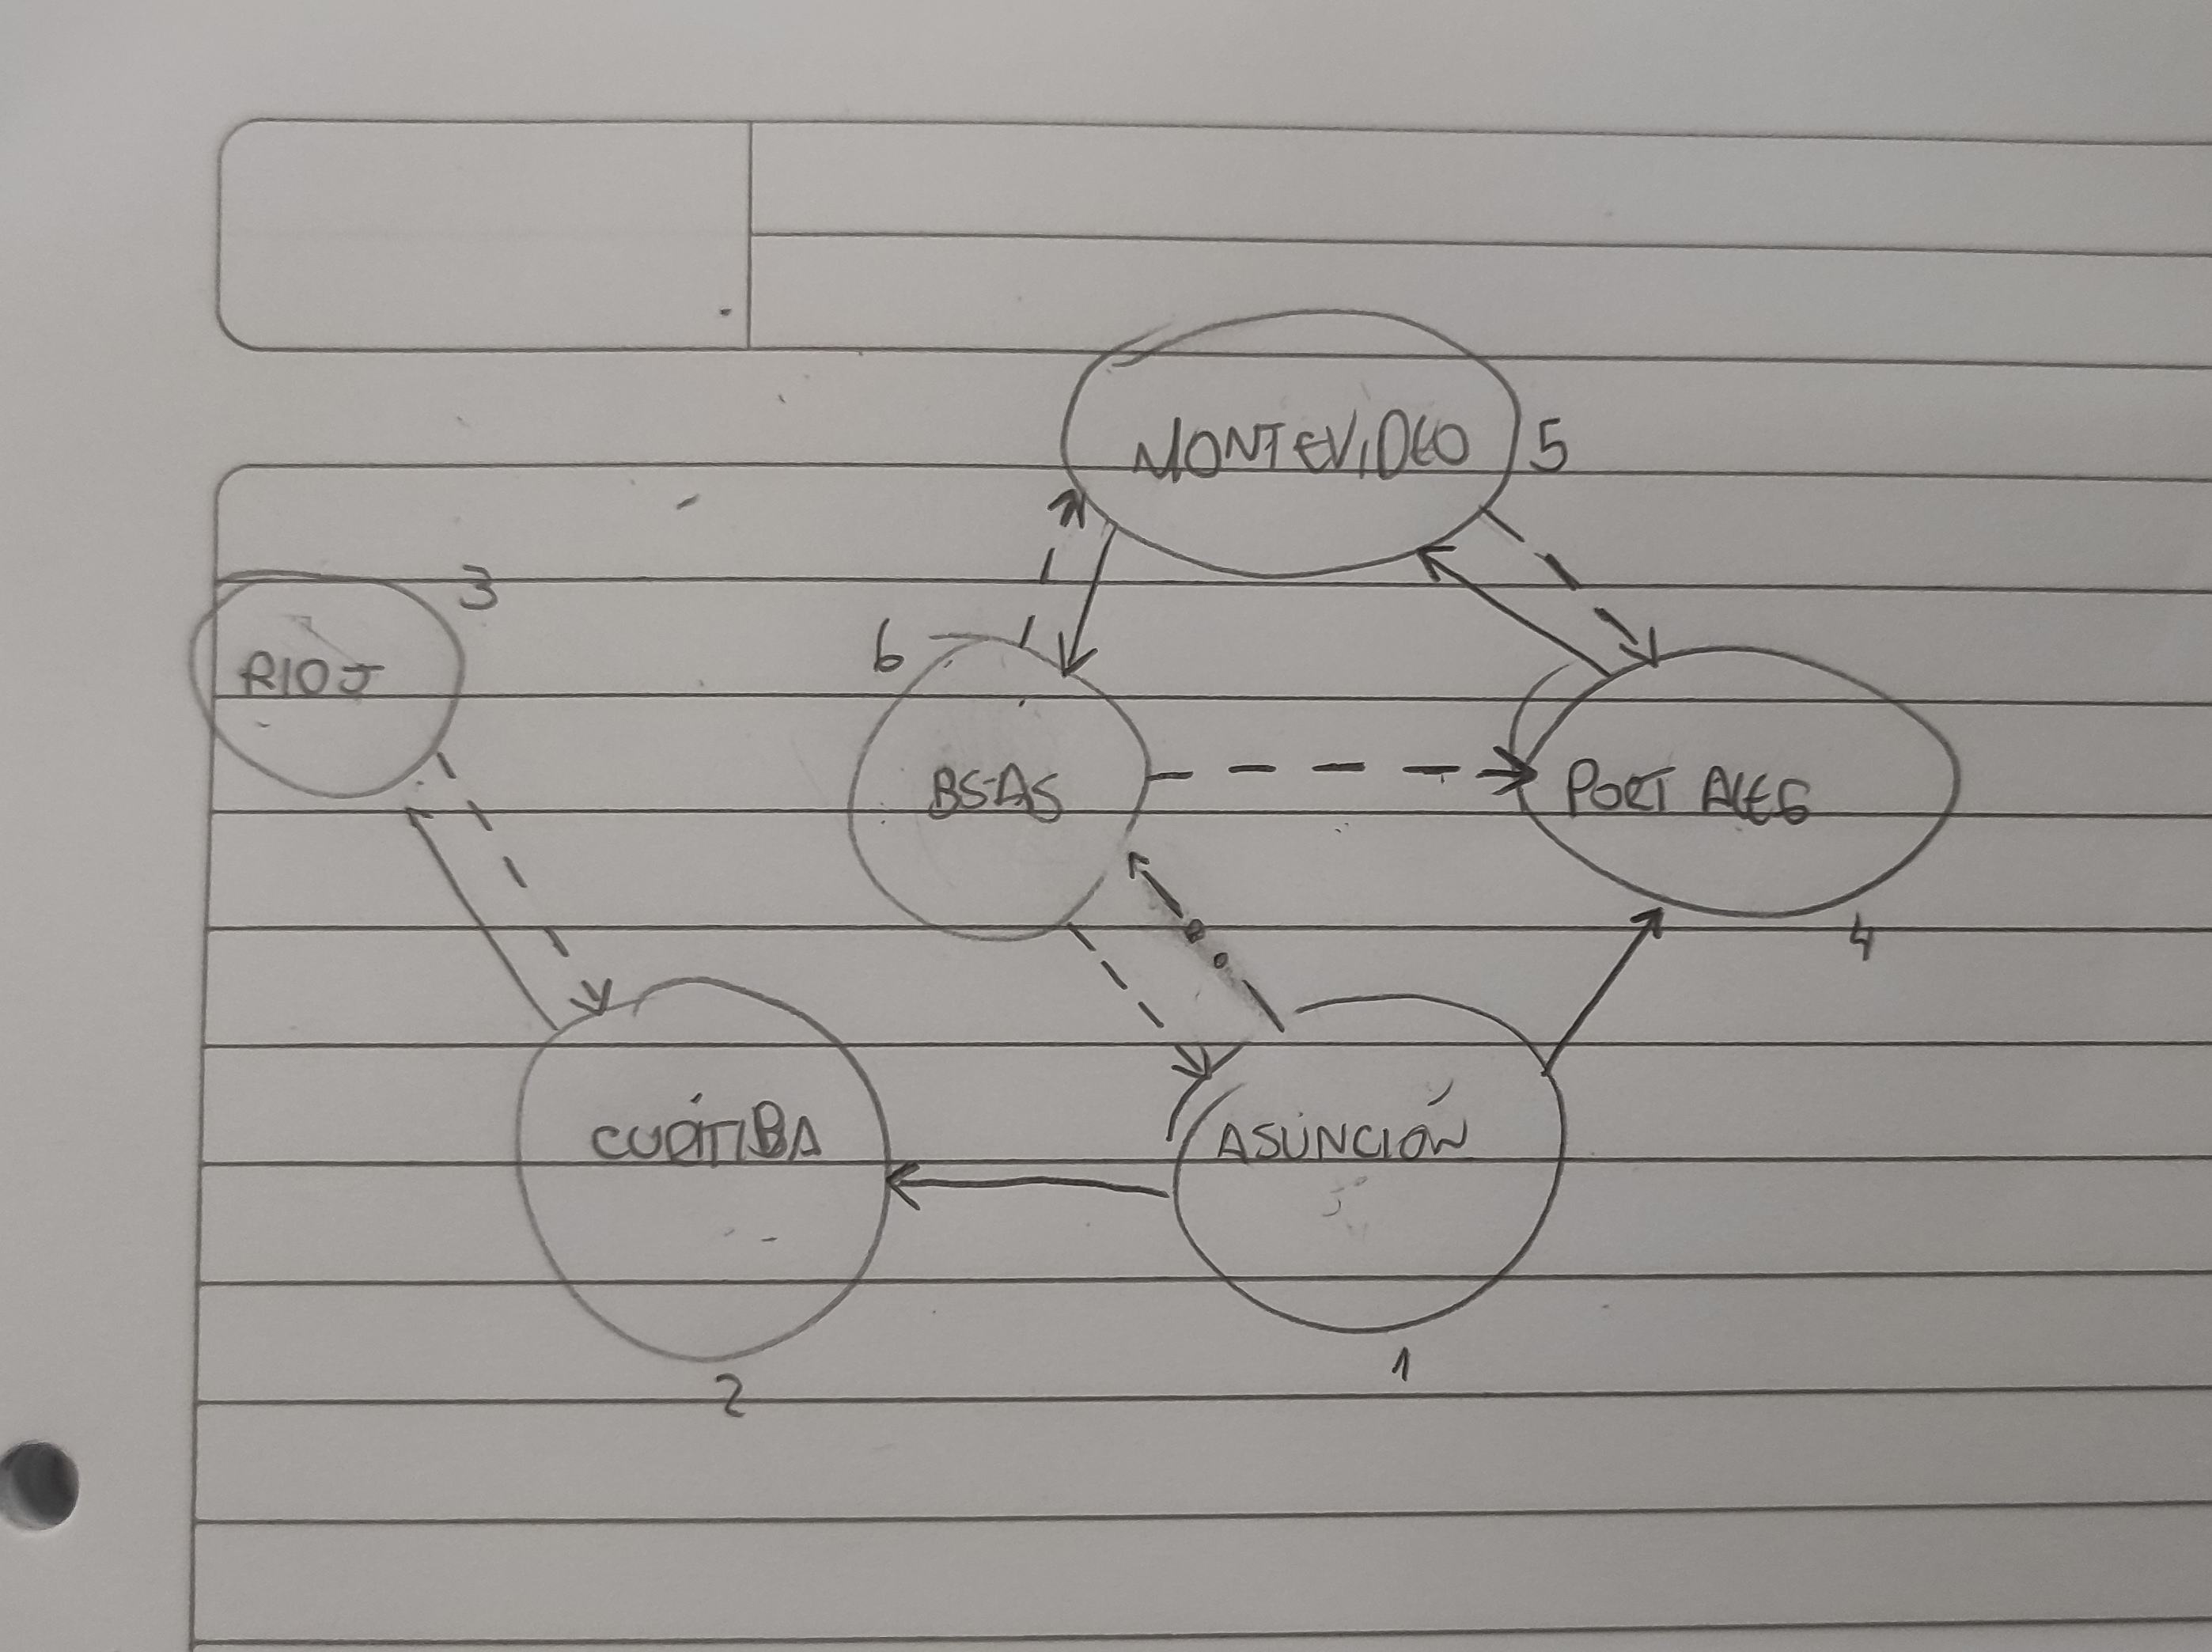 MONTEVIDEO 5
3
RIO J
6
BS-AS
PORT ALEG
4
CURITIBA
ASUNCIÓN
1
2